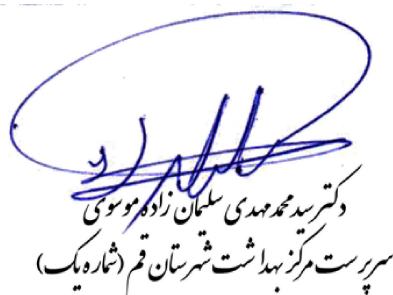 دکتر سید محمد مهدی سلیمان زاده موسوی
سرپرست مرکز بهداشت شهرستان قم (شماره یک)